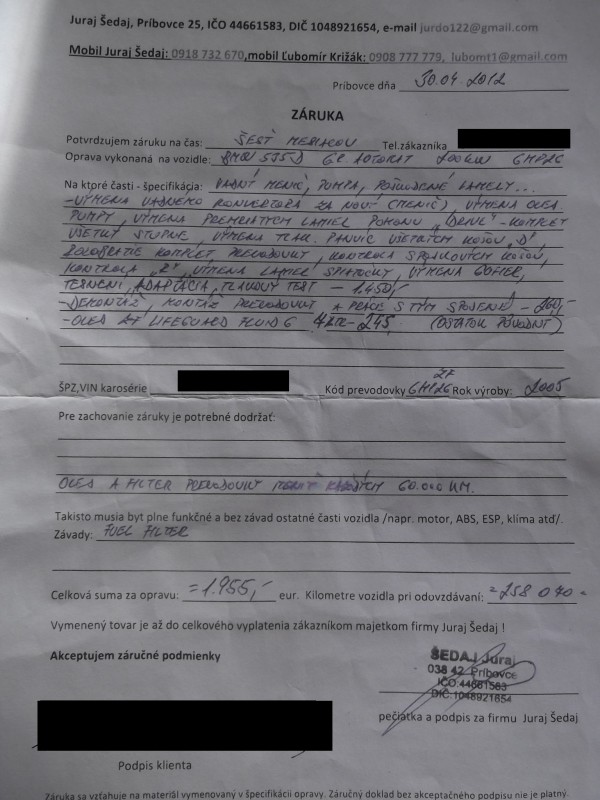 Juraj Šedaj, Príbovce 25, IČO 44661583, DIČ 1048921654, e-mail jurdo122@gmail.com
Mobil Juraj Šedaj: 0918 732 670,mobil Ľubomír Križák: 0908 777 779, lubomt1@gmail.com
Príbovce dňa 30.04 2012
ZÁRUKA
Potvrdzujem záruku na čas: ŠESŤ MESIACOV Tel.zákazníka
Oprava vykonaná na vozidle: BMW 535D 6° AUTOMAT 200KW 6HP26
Na ktoré časti - špecifikácia: VADNÝ MENIČ, PUMPA, POŠKODENÉ LAMELY...
-VÝMENA VADNÉHO KONVERTORA ZA NOVÝ (MENIČ), VÝMENA OLEJ.
PUMPY, VÝMENA LAMIEL POHONU "DRIVE"-KOMPLET
VŠETKY STUPNE, VÝMENA TLAK. PANVÍC VŠETKÝCH KOŠOV "D",
KOMPLET PREVODOVKY, KONTROLA SPOJKOVÝCH KOŠOV,
KONTROLA "R", VÝMENA LAMIEL SPIATOČKY, VÝMENA GUFIER,
TESNENÍ, ADAPTÁCIA, TLAKOVÝ TEST - 1.450,-
-DEMONTÁŽ, MONTÁŽ PREVODOVKY A PRÁCE S TÝM SPOJENÉ - 260,-
-OLEJ ZF LIFEGUARD FLUID 6 - 245,- (OSTATOK PÔVODNÝ)
ŠPZ,VIN karosérie Kód prevodovky ZF 6HP26 Rok výroby: 2005
Pre zachovanie záruky je potrebné dodržať:
OLEJ A FILTER PREVODOVKY MENIŤ KAŽDÝCH 60.000 KM.
Takisto musia byt plne funkčné a bez závad ostatné časti vozidla /napr. motor, ABS, ESP, klíma atď/.
Závady: FUEL FILTER
Celková suma za opravu: =1.955,- eur. Kilometre vozidla pri odovzdávaní: =258 070=
Vymenený tovar je až do celkového vyplatenia zákazníkom majetkom firmy Juraj Šedaj !
Akceptujem záručné podmienky
ŠEDAJ Juraj
038 42 Príbovce
IČO:44661583
DIČ:1048921654
pečiatka a podpis za firmu Juraj Šedaj
Podpis klienta
Záruka sa vzťahuje na materiál vymenovaný v špecifikácii opravy. Záručný doklad bez akceptačného podpisu nie je platný.